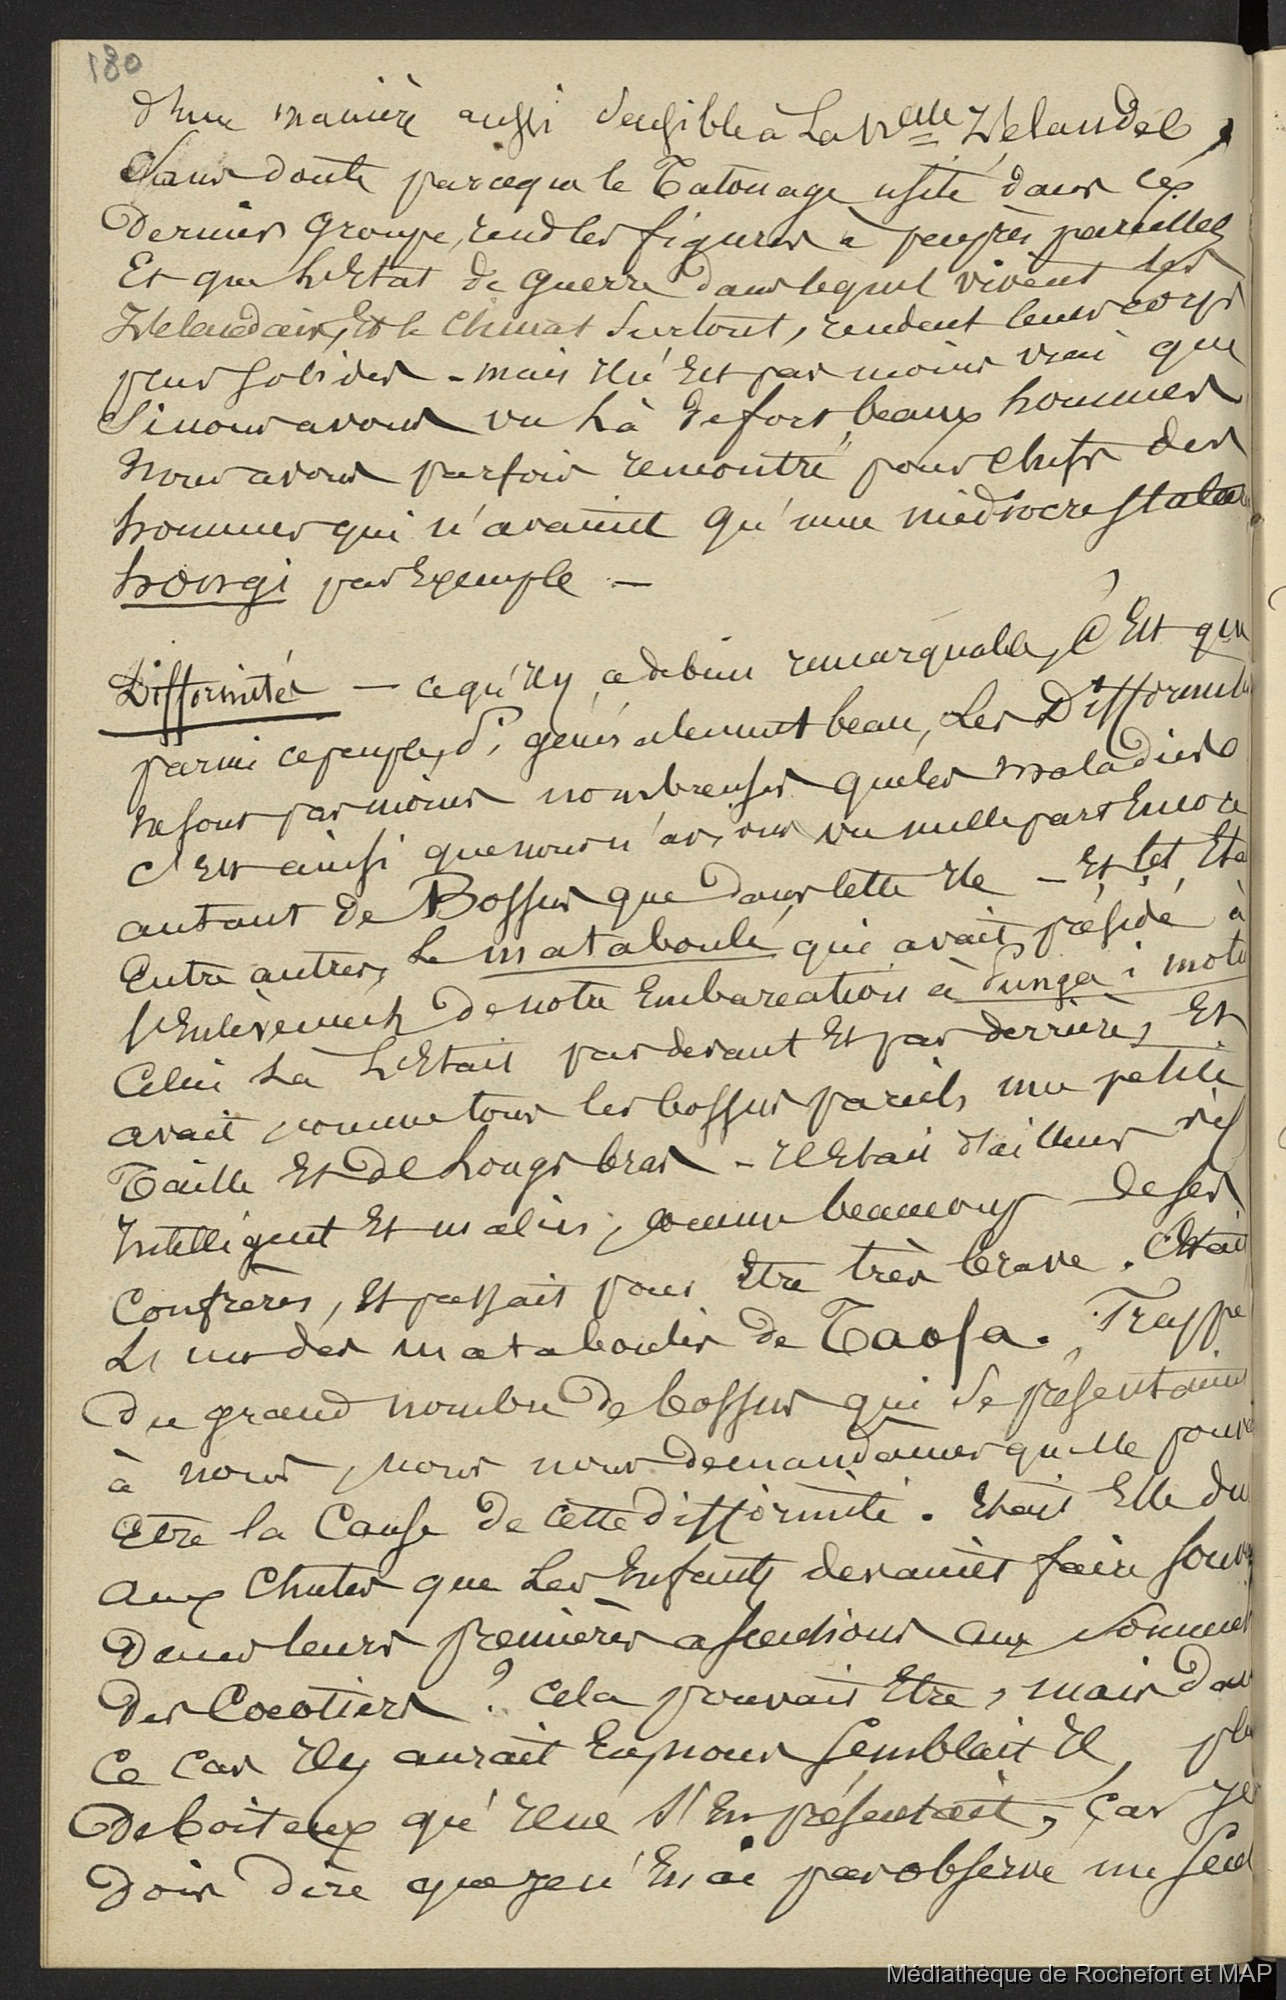 180
d'une manière aussi sensible à La Nelle Zélandée,
Sans doute parceque le Tatouage usité dans ces
Derniers groupe, rend les figures à peuprès pareilles
Et que L'Etat de guerre dans lequel vivent les
Zélandais, Et le climat surtout, rendent leurs corps
plus solides - mais il n'Est pas moins vrai que
Si nous avons vu Là de fort beaux hommes
Nous avons parfois rencontré pour chefs des
hommes qui n'avaient qu'une médiocre stature
hongi par Exemple -
Difformités - ce qu'il y a de bien remarquable, C'Est que
parmi ce peuple, Si généralement beau, Les Difformités
ne sont pas moins nombreuses que les maladies
C'Est ainsi que nous n'avions vu nulle part Encore
autant de Bossus que dans cette Ile -
Entre autres, Le mataboulé qui avait présidé à
l'Enlèvement de notre Embarcation à Punga i motu
Celui Là L'Etait par devant Et par derrière, Et
avait comme tous les bossus pareils une petite
Taille Et de Longs bras - Il Etait d'ailleurs vif
Intelligent Et malin, comme beaucoup de ses
Confrères, Et passait pour Etre très brave. C'Etait
L'un des mataboulés de Taofa. Frappé
Du grand nombre de bossus qui se présentaient
à nous, nous nous demandâmes quelle pouvait
Etre la Cause de cette difformité. Etait Elle due
Aux Chutes que Les Enfants devaient faire souvent
Dans leurs premières ascensions aux sommets
Des Cocotiers ? Cela pouvait Etre, mais Dans
Ce Cas Il y aurait Eu, nous semblait Il, plus
De boiteux qu'Il ne S'En présentait, Car Je
Dois Dire que Je n'En ai pas observé un seul
Médiathèque de Rochefort et MAP